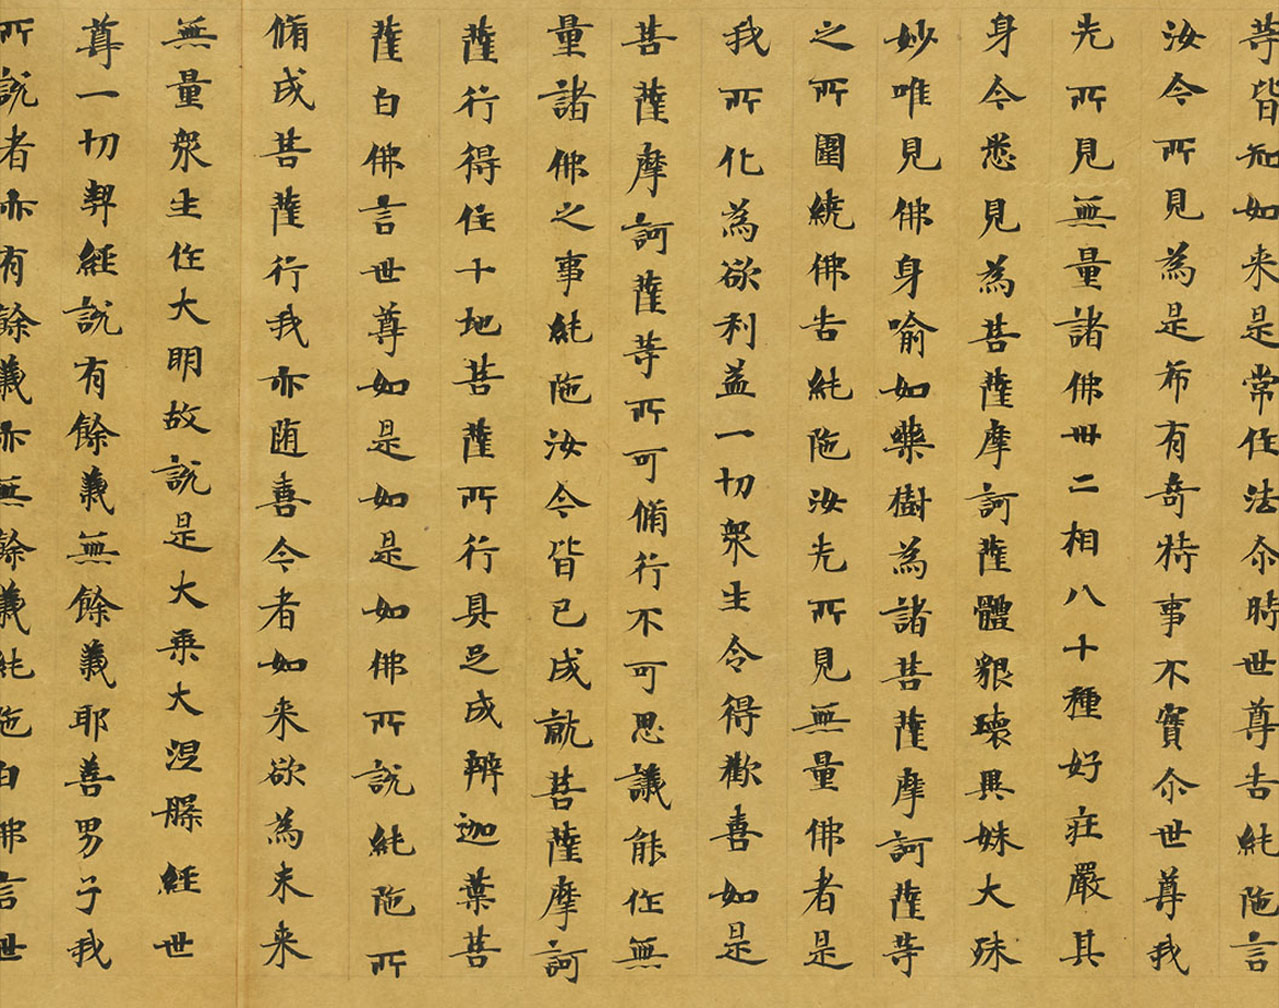 等皆知如来是常住法尒時世尊告純陁言
汝今所見為是希有奇特事不實尒世尊我
先所見無量諸佛卅二相八十種好莊嚴其
身今悉見為菩薩摩訶薩體貌瓌異姝大殊
妙唯見佛身喻如藥樹為諸菩薩摩訶薩等
之所圍繞佛告純陁汝先所見無量佛者是
我所化為欲利益一切衆生令得歡喜如是
菩薩摩訶薩等所可脩行不可思議能作無
量諸佛之事純陁汝今皆已成就菩薩摩訶
薩行得住十地菩薩所行具足成辦迦葉菩
薩白佛言世尊如是如是如佛所說純陁所
脩成菩薩行我亦随喜今者如来欲為未来
無量衆生作大明故說是大乘大涅槃經世
尊一切契經說有餘義無餘義耶善男子我
所說者亦有餘義亦無餘義純陁白佛言世